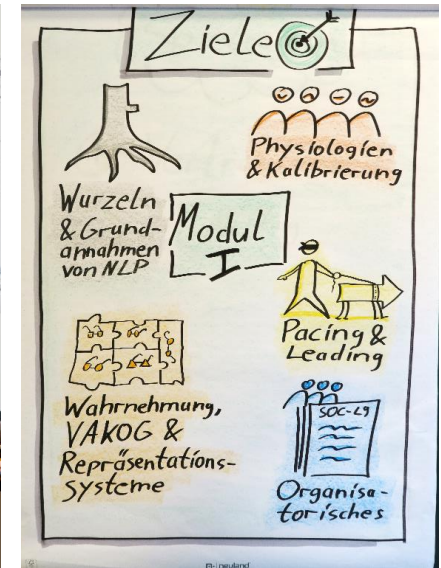 Ziele
Wurzeln
& Grund-
annahmen
von NLP
Physiologien
& Kalibrierung
Modul
I
Pacing &
Leading
Wahrnehmung,
VAKOG &
Repräsentations-
systeme
SOC-L9
Organisa-
torisches
neuland